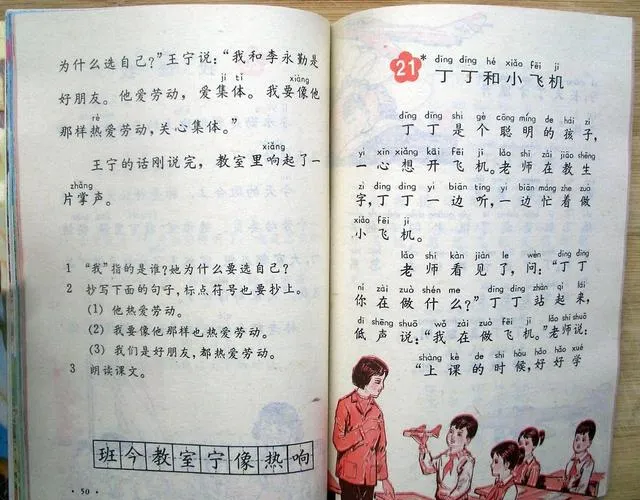 为什么选自己?”王宁说:“我和李永勤是
jí tǐ xiàng
好朋友。他爱劳动,爱集体。我要像他
那样热爱劳动,关心集体。”
xiǎng
王宁的话刚说完,教室里响起了一
zhǎng
片掌声。
1 “我”指的是谁?她为什么要选自己?
2 抄写下面的句子,标点符号也要抄上。
(1) 他热爱劳动。
(2) 我要像他那样也热爱劳动。
(3) 我们是好朋友,都热爱劳动。
3 朗读课文。
班今教室宁像热响
· 50 ·
dīng dīng hé xiǎo fēi jī
21 * 丁丁和小飞机
dīng dīng shì gè cōng míng de hái zi
丁丁是个聪明的孩子,
yì xīn xiǎng kāi fēi jī lǎo shī zài jiāo shēng
一心想开飞机。老师在教生
zì dīng dīng yì biān tīng yì biān máng zhe zuò
字,丁丁一边听,一边忙着做
xiǎo fēi jī
小飞机。
lǎo shī kàn jiàn le wèn dīng dīng
老师看见了,问:“丁丁
nǐ zài zuò shén me dīng dīng zhàn qǐ lái
你在做什么?”丁丁站起来,
dī shēng shuō wǒ zài zuò fēi jī lǎo shī shuō
低声说:“我在做飞机。”老师说:
shàng kè de shí hou hǎo hǎo xué
“上课的时候,好好学